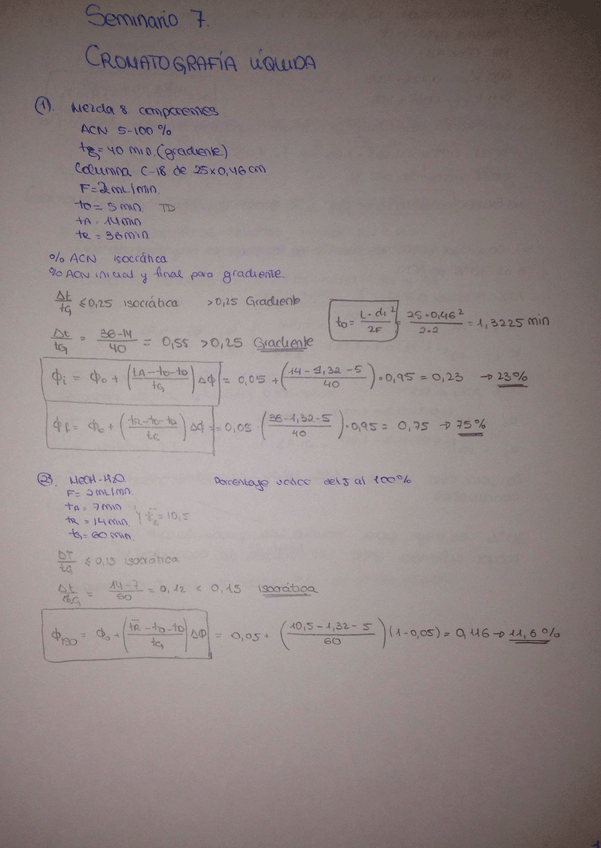 Seminario 7.
CROMATOGRAFÍA LÍQUIDA
(1). Mezcla 8 componentes
ACN 5-100%
tG = 40 min. (gradiente)
Columna C-18 de 25x0,46cm
F = 2mL/min.
tD = 5 min. TD
tA = 14min
tR = 36min
% ACN isocrática
% ACN inicial y final para gradiente.
Δt/tG ≤ 0,25 isocrática >0,25 Gradiente
t0 = L·di²/2F = 25·0,46²/2·2 = 1,3225 min
Δt/tG = 36-14/40 = 0,55 > 0,25 Gradiente
Φi = Φ0 + (tA-t0-tD/tG)ΔΦ = 0,05 + (14-1,32-5/40)·0,95 = 0,23 → 23%
Φf = Φ0 + (tR-t0-tD/tG)ΔΦ = 0,05 · (36-1,32-5/40)·0,95 = 0,75 → 75%
(2). MeOH-H2O Porcentaje varios del 5 al 100%
F = 2mL/min.
tA = 7min
tR = 14min = 10,5
tG = 60min.
Δt/tG ≤ 0,15 isocrática
Δt/tG = 14-7/60 = 0,12 < 0,15 isocrática
ΦISO = Φ0 + (tR-t0-tD/tG)ΔΦ = 0,05 + (10,5-1,32-5/60)(1-0,05) = 0,116 → 11,6%